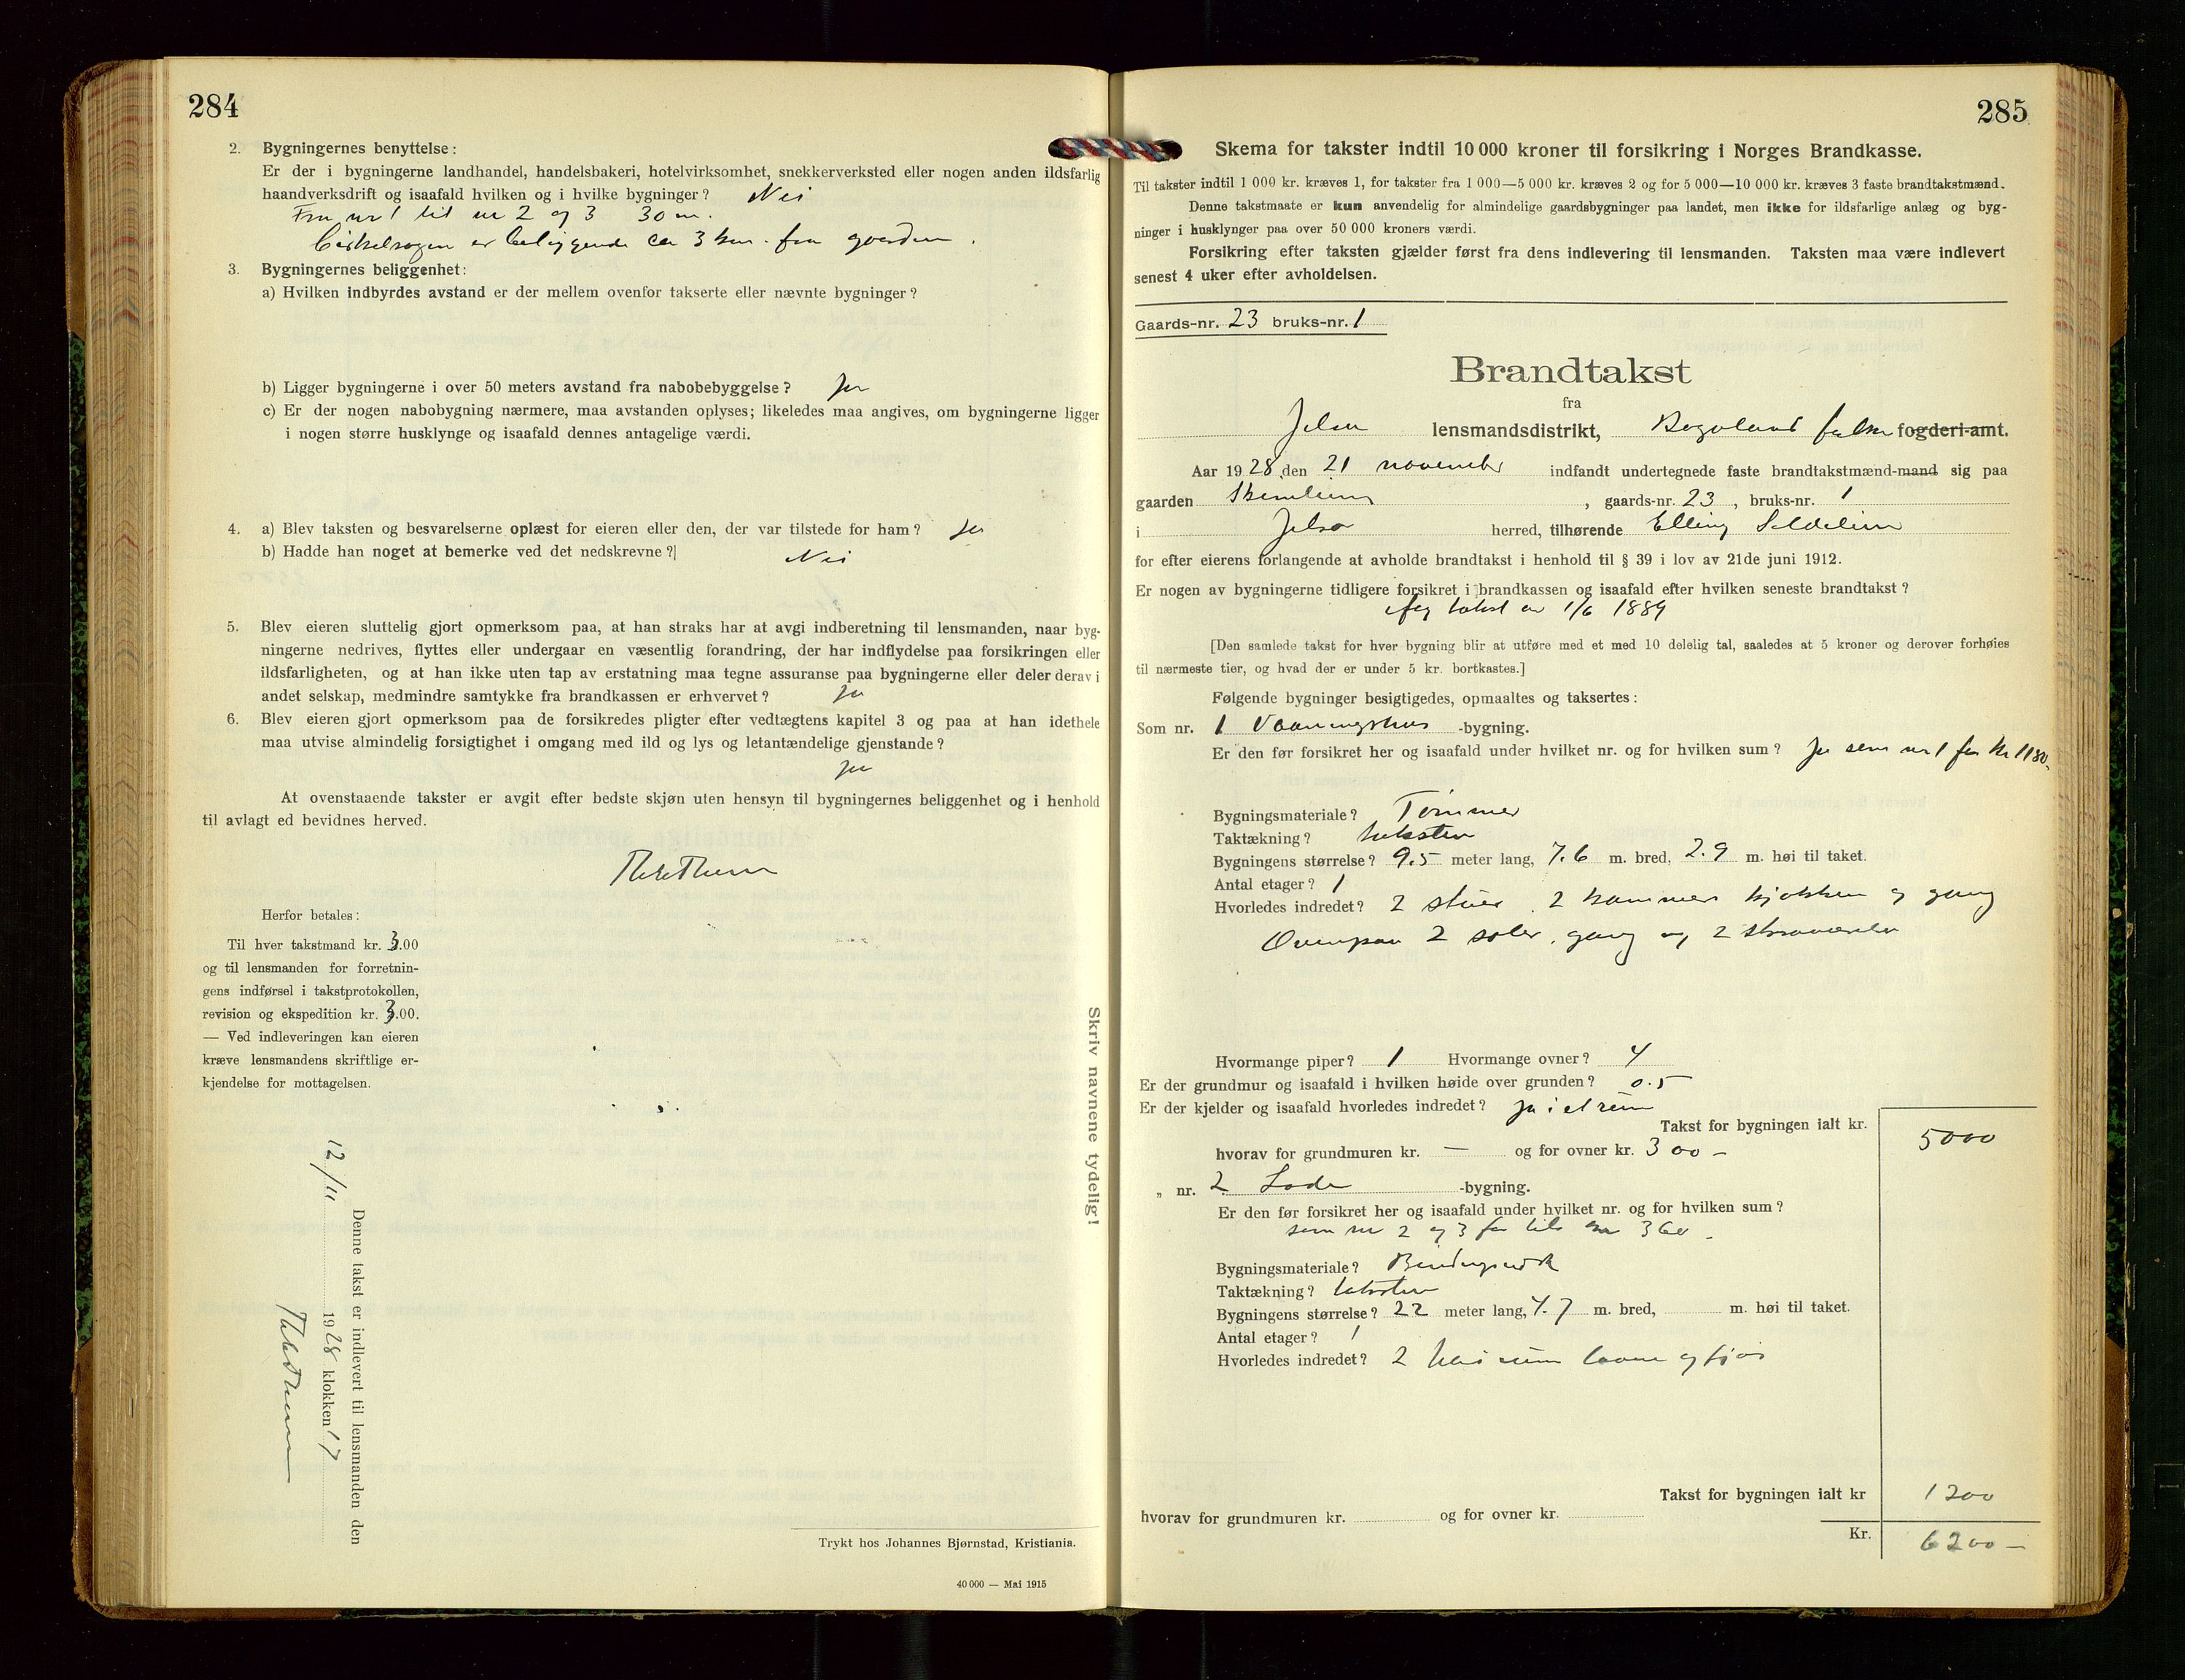 284
2. Bygningernes benyttelse:
Er der i bygningerne landhandel, handelsbakeri, hotelvirksomhet, snekkerverksted eller nogen anden ildsfarlig
haandverksdrift og isaafald hvilken og i hvilke bygninger? Nei
Fra nr 1 til nr 2 og 3 30 m.
Cirkelsagen er beliggende ca 3 km. fra gaarden.
3. Bygningernes beliggenhet:
a) Hvilken indbyrdes avstand er der mellem ovenfor takserte eller nævnte bygninger?
b) Ligger bygningerne i over 50 meters avstand fra nabobebyggelse? Ja
c) Er der nogen nabobygning nærmere, maa avstanden oplyses; likeledes maa angives, om bygningerne ligger
i nogen større husklynge og isaafald dennes antagelige værdi.
4. a) Blev taksten og besvarelserne oplæst for eieren eller den, der var tilstede for ham? Ja
b) Hadde han noget at bemerke ved det nedskrevne? Nei
5. Blev eieren sluttelig gjort opmerksom paa, at han straks har at avgi indberetning til lensmanden, naar byg-
ningerne nedrives, flyttes eller undergaar en væsentlig forandring, der har indflydelse paa forsikringen eller
ildsfarligheten, og at han ikke uten tap av erstatning maa tegne assuranse paa bygningerne eller deler derav i
andet selskap, medmindre samtykke fra brandkassen er erhvervet? Ja
6. Blev eieren gjort opmerksom paa de forsikredes pligter efter vedtægtens kapitel 3 og paa at han idethele
maa utvise almindelig forsigtighet i omgang med ild og lys og letantændelige gjenstande?
Ja
At ovenstaaende takster er avgit efter bedste skjøn uten hensyn til bygningernes beliggenhet og i henhold
til avlagt ed bevidnes herved.
Herfor betales:
Til hver takstmand kr. 3.00
og til lensmanden for forretnin-
gens indførsel i takstprotokollen,
revision og ekspedition kr. 3.00.
— Ved indleveringen kan eieren
kræve lensmandens skriftlige er-
kjendelse for mottagelsen.
Denne takst er indlevert til lensmanden den
12/11 1928 klokken 17
Skriv navnene tydelig!
Trykt hos Johannes Bjørnstad, Kristiania.
40 000 — Mai 1915
285
Skema for takster indtil 10 000 kroner til forsikring i Norges Brandkasse.
Til takster indtil 1 000 kr. kræves 1, for takster fra 1 000—5 000 kr. kræves 2 og for 5 000—10 000 kr. kræves 3 faste brandtakstmænd.
Denne takstmaate er kun anvendelig for almindelige gaardsbygninger paa landet, men ikke for ildsfarlige anlæg og byg-
ninger i husklynger paa over 50 000 kroners værdi.
Forsikring efter taksten gjælder først fra dens indlevering til lensmanden. Taksten maa være indlevert
senest 4 uker efter avholdelsen.
Gaards-nr. 23 bruks-nr. 1
Brandtakst
fra
Jelsa lensmandsdistrikt, Rogaland fylke fogderi-amt.
Aar 1928 den 21 november indfandt undertegnede faste brandtakstmænd-mand sig paa
gaarden , gaards-nr. 23, bruks-nr. 1
i Jelsa herred, tilhørende Elling
for efter eierens forlangende at avholde brandtakst i henhold til § 39 i lov av 21de juni 1912.
Er nogen av bygningerne tidligere forsikret i brandkassen og isaafald efter hvilken seneste brandtakst?
takst av 1/6 1889
[Den samlede takst for hver bygning blir at utføre med et med 10 delelig tal, saaledes at 5 kroner og derover forhøies
til nærmeste tier, og hvad der er under 5 kr. bortkastes.]
Følgende bygninger besigtigedes, opmaaltes og taksertes:
Som nr. 1 Vaaningshus -bygning.
Er den før forsikret her og isaafald under hvilket nr. og for hvilken sum? Ja som nr 1 for kr 1180.
Bygningsmateriale? Tømmer
Taktækning? taksten
Bygningens størrelse? 9.5 meter lang, 7.6 m. bred, 2.9 m. høi til taket.
Antal etager? 1
Hvorledes indredet? 2 stuer, 2 kammers kjøkken og gang
Ovenpaa 2 saler, gang og 2
Hvormange piper? 1 Hvormange ovner? 4
Er der grundmur og isaafald i hvilken høide over grunden? 0.5
Er der kjelder og isaafald hvorledes indredet? Ja i et rum
Takst for bygningen ialt kr. 5000
hvorav for grundmuren kr. — og for ovner kr. 300 –
„ nr. 2 Lade -bygning.
Er den før forsikret her og isaafald under hvilket nr. og for hvilken sum?
som nr 2 og 3 for tils kr 360.
Bygningsmateriale? Bindingsverk
Taktækning? taksten
Bygningens størrelse? 22 meter lang, 7.7 m. bred, m. høi til taket.
Antal etager? 1
Hvorledes indredet? 2 høi rum laave og fjøs
Takst for bygningen ialt kr 1200
hvorav for grundmuren kr. og for ovner kr.
Kr. 6200 –